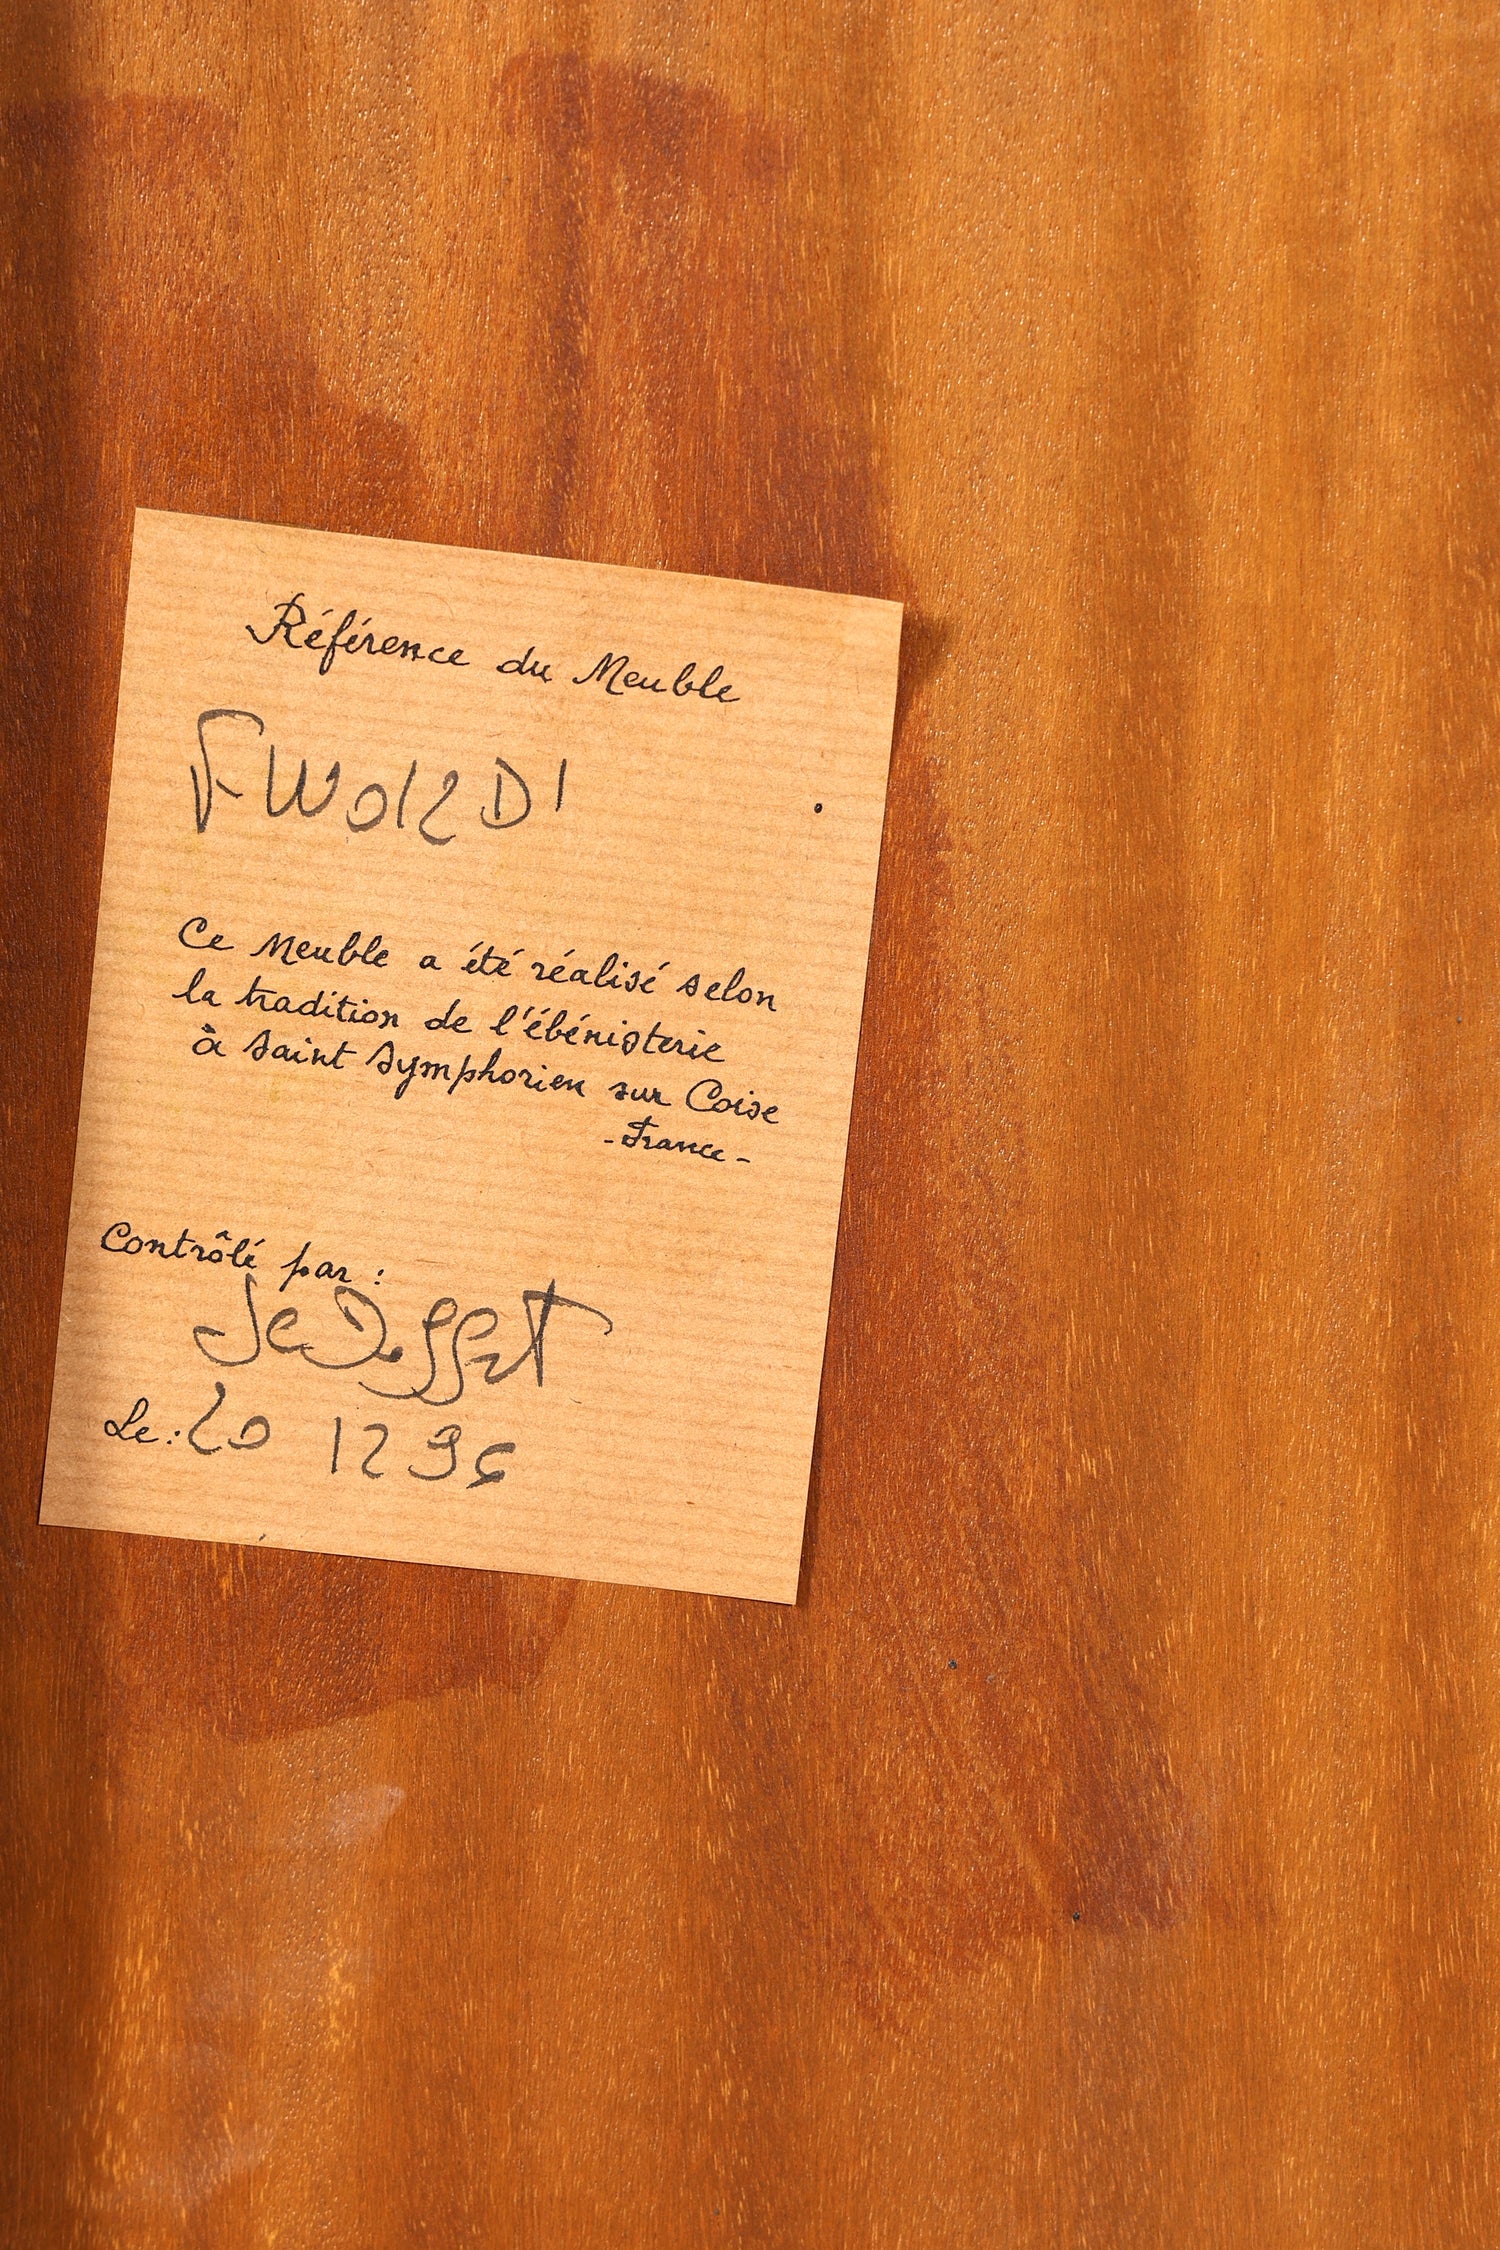 Référence du Meuble
FW012D1
Ce Meuble a été réalisé selon
la tradition de l'ébénisterie
à Saint Symphorien sur Coise
- France -
Contrôlé par :
Le : 20 12 96